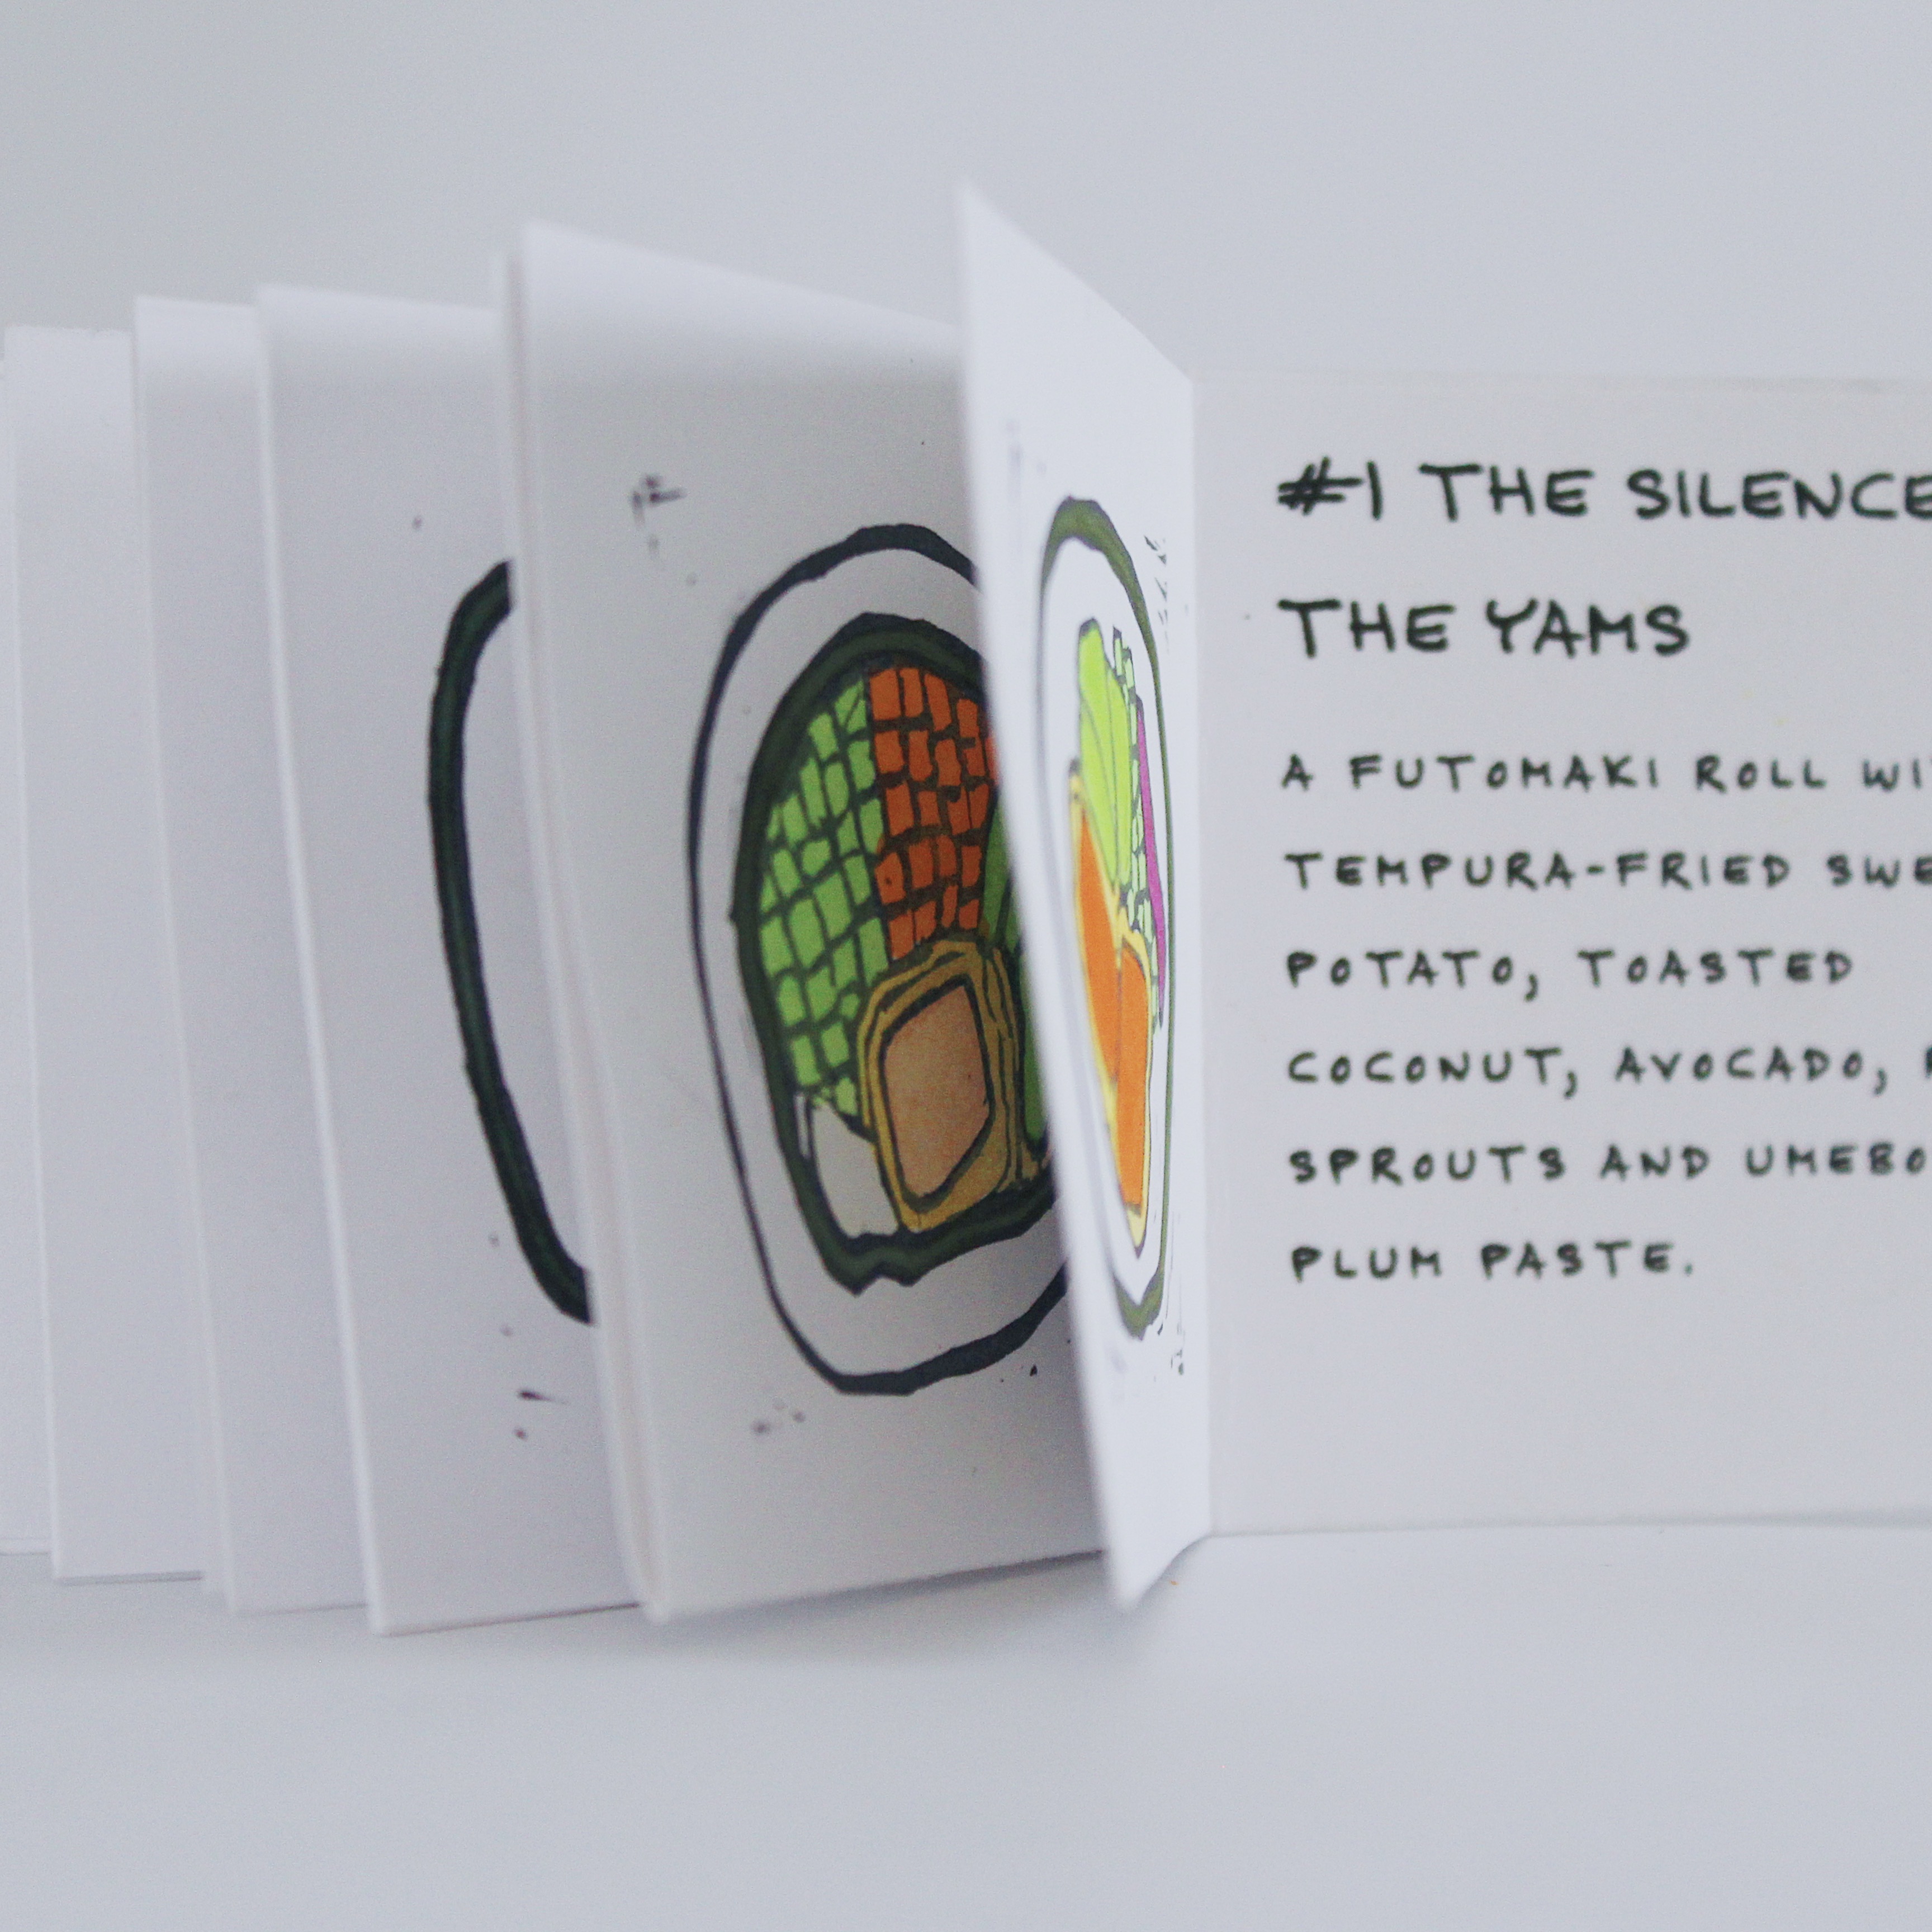 #1 THE SILENCE
THE YAMS
A FUTOMAKI ROLL
TEMPURA-FRIED
POTATO, TOASTED
COCONUT, AVOCADO,
SPROUTS AND
PLUM PASTE.